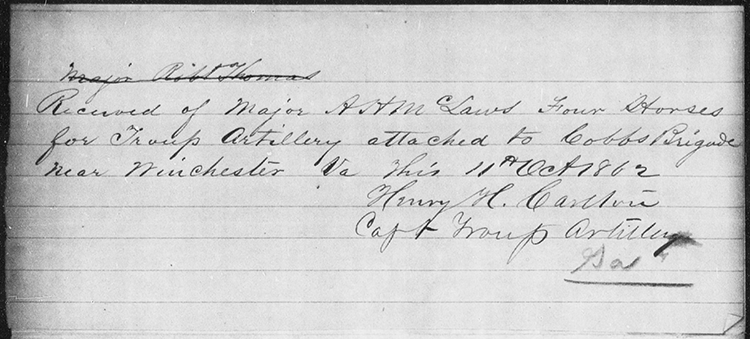 Major Robt Thomas
Received of Major A H McLaws Four Horses
for Troup Artillery attached to Cobbs Brigade
near Winchester Va this 11th Oct 1862
Henry H. Carlton
Capt Troup Artillery
Ga